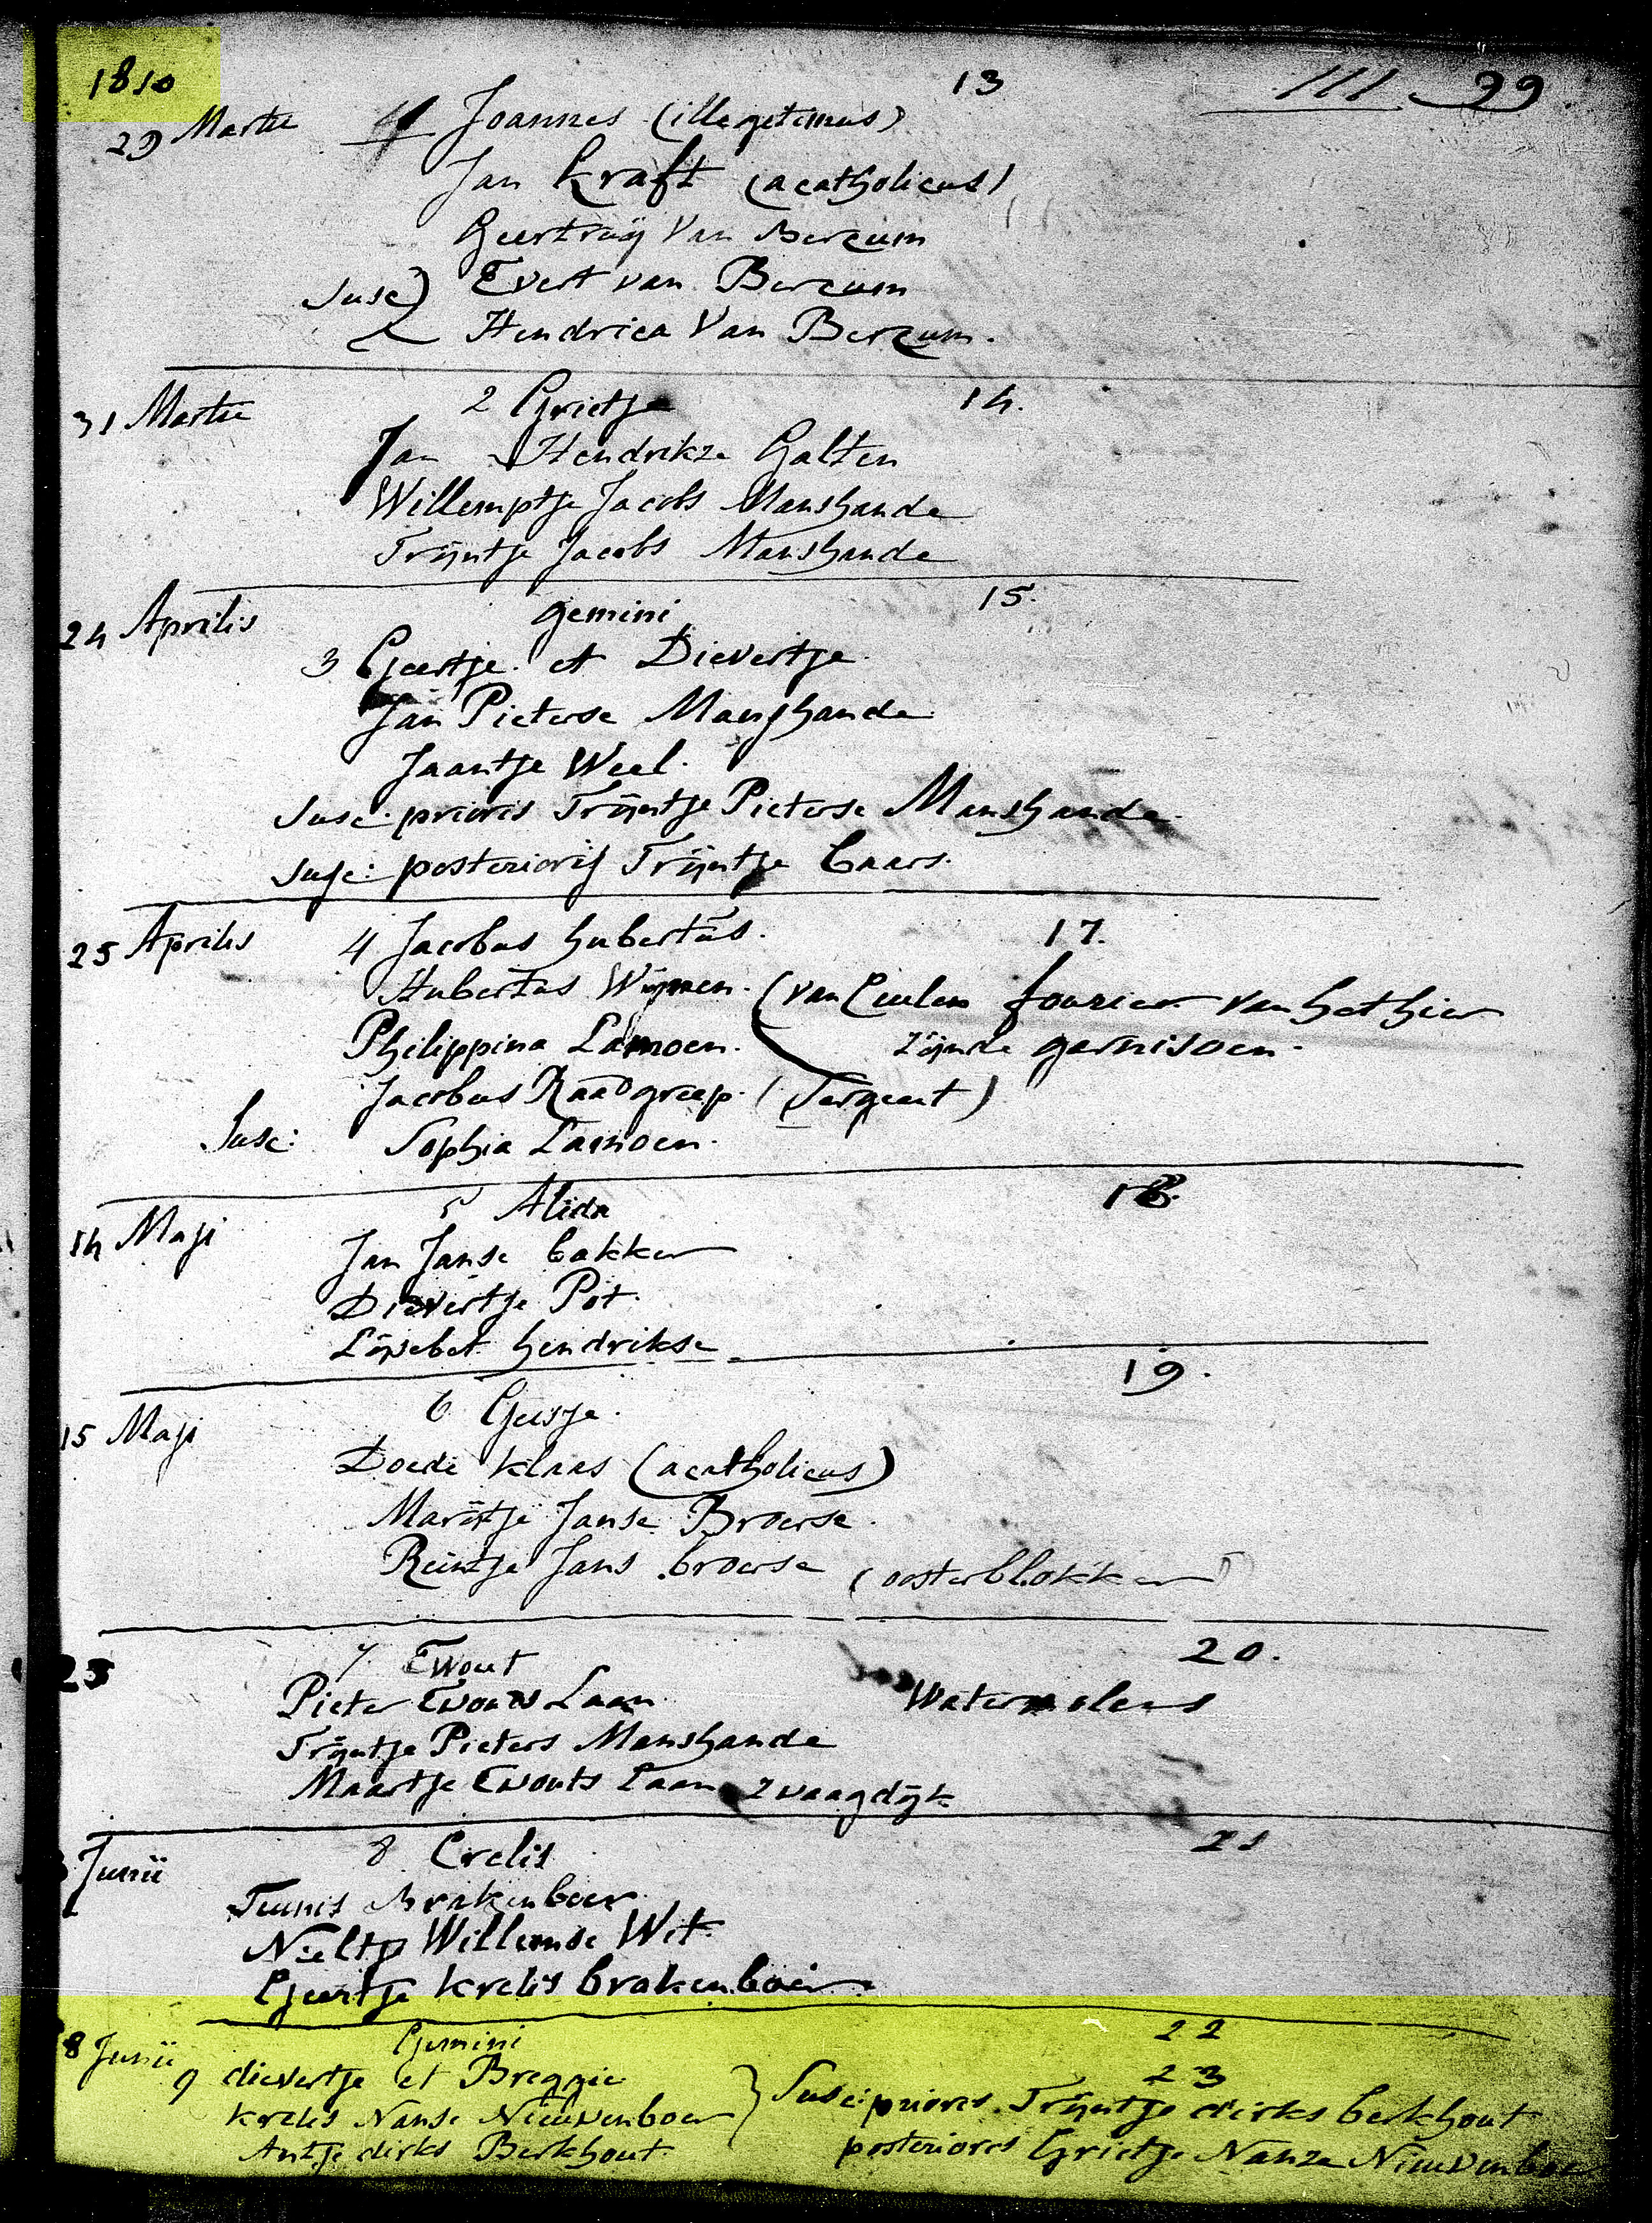 1810 13 111 99
29 Martii 1 Joannes (illegetimus)
Jan Kraft (acatholicus)
Geertruij Van Berzum
Susc) Evert van Berzum
Hendrica Van Berzum.
31 Martii 2 Grietje 14.
Jan Hendrikze Galten
Willemptje Jacobs Manshande
Trijntje Jacobs Manshande
24 Aprilis gemini 15.
3 Geertje et Dievertje
Jan Pieterse Manshande
Jaantje Weel.
Susc. prioris Trijntje Pieterse Manshande
Susc: posterioris Trijntje Baars.
25 Aprilis 4 Jacobus hubertus. 17.
Hubertus Wijnen. (van Ceulen fourier van het hier
Philippina Lamoen. Zijnde garnisoen.
Jacobus Raadgreep. (Sergeent)
Susc: Sophia Lamoen.
14 Maji 5 Alida 18.
Jan Janse bakker
Dievertje Pot.
Lijsebet hendrikse
19.
15 Maji 6 Geesje.
Doede Klaas (acatholicus)
Marijtje Janse Broerse.
Reintje Jans broerse (oosterblokker)
25 7 Ewout 20.
Pieter Ewouts Laan Watermolens
Trijntje Pieters Manshande
Maartje Ewouts Laan Zwaagdijk
Junii 8 Crelis 21
Teunis Brakenboer.
Neeltje Willemse Wit.
Geertje Krelis brakenboer
8 Junii Gemini 22
9 dievertje et Breggie 23
Krelis Nanse Nieuwenboer } Susc: priores Trijntje dirks berkhout
Antje dirks Berkhout. posteriores Grietje Nanze Nieuwenboer